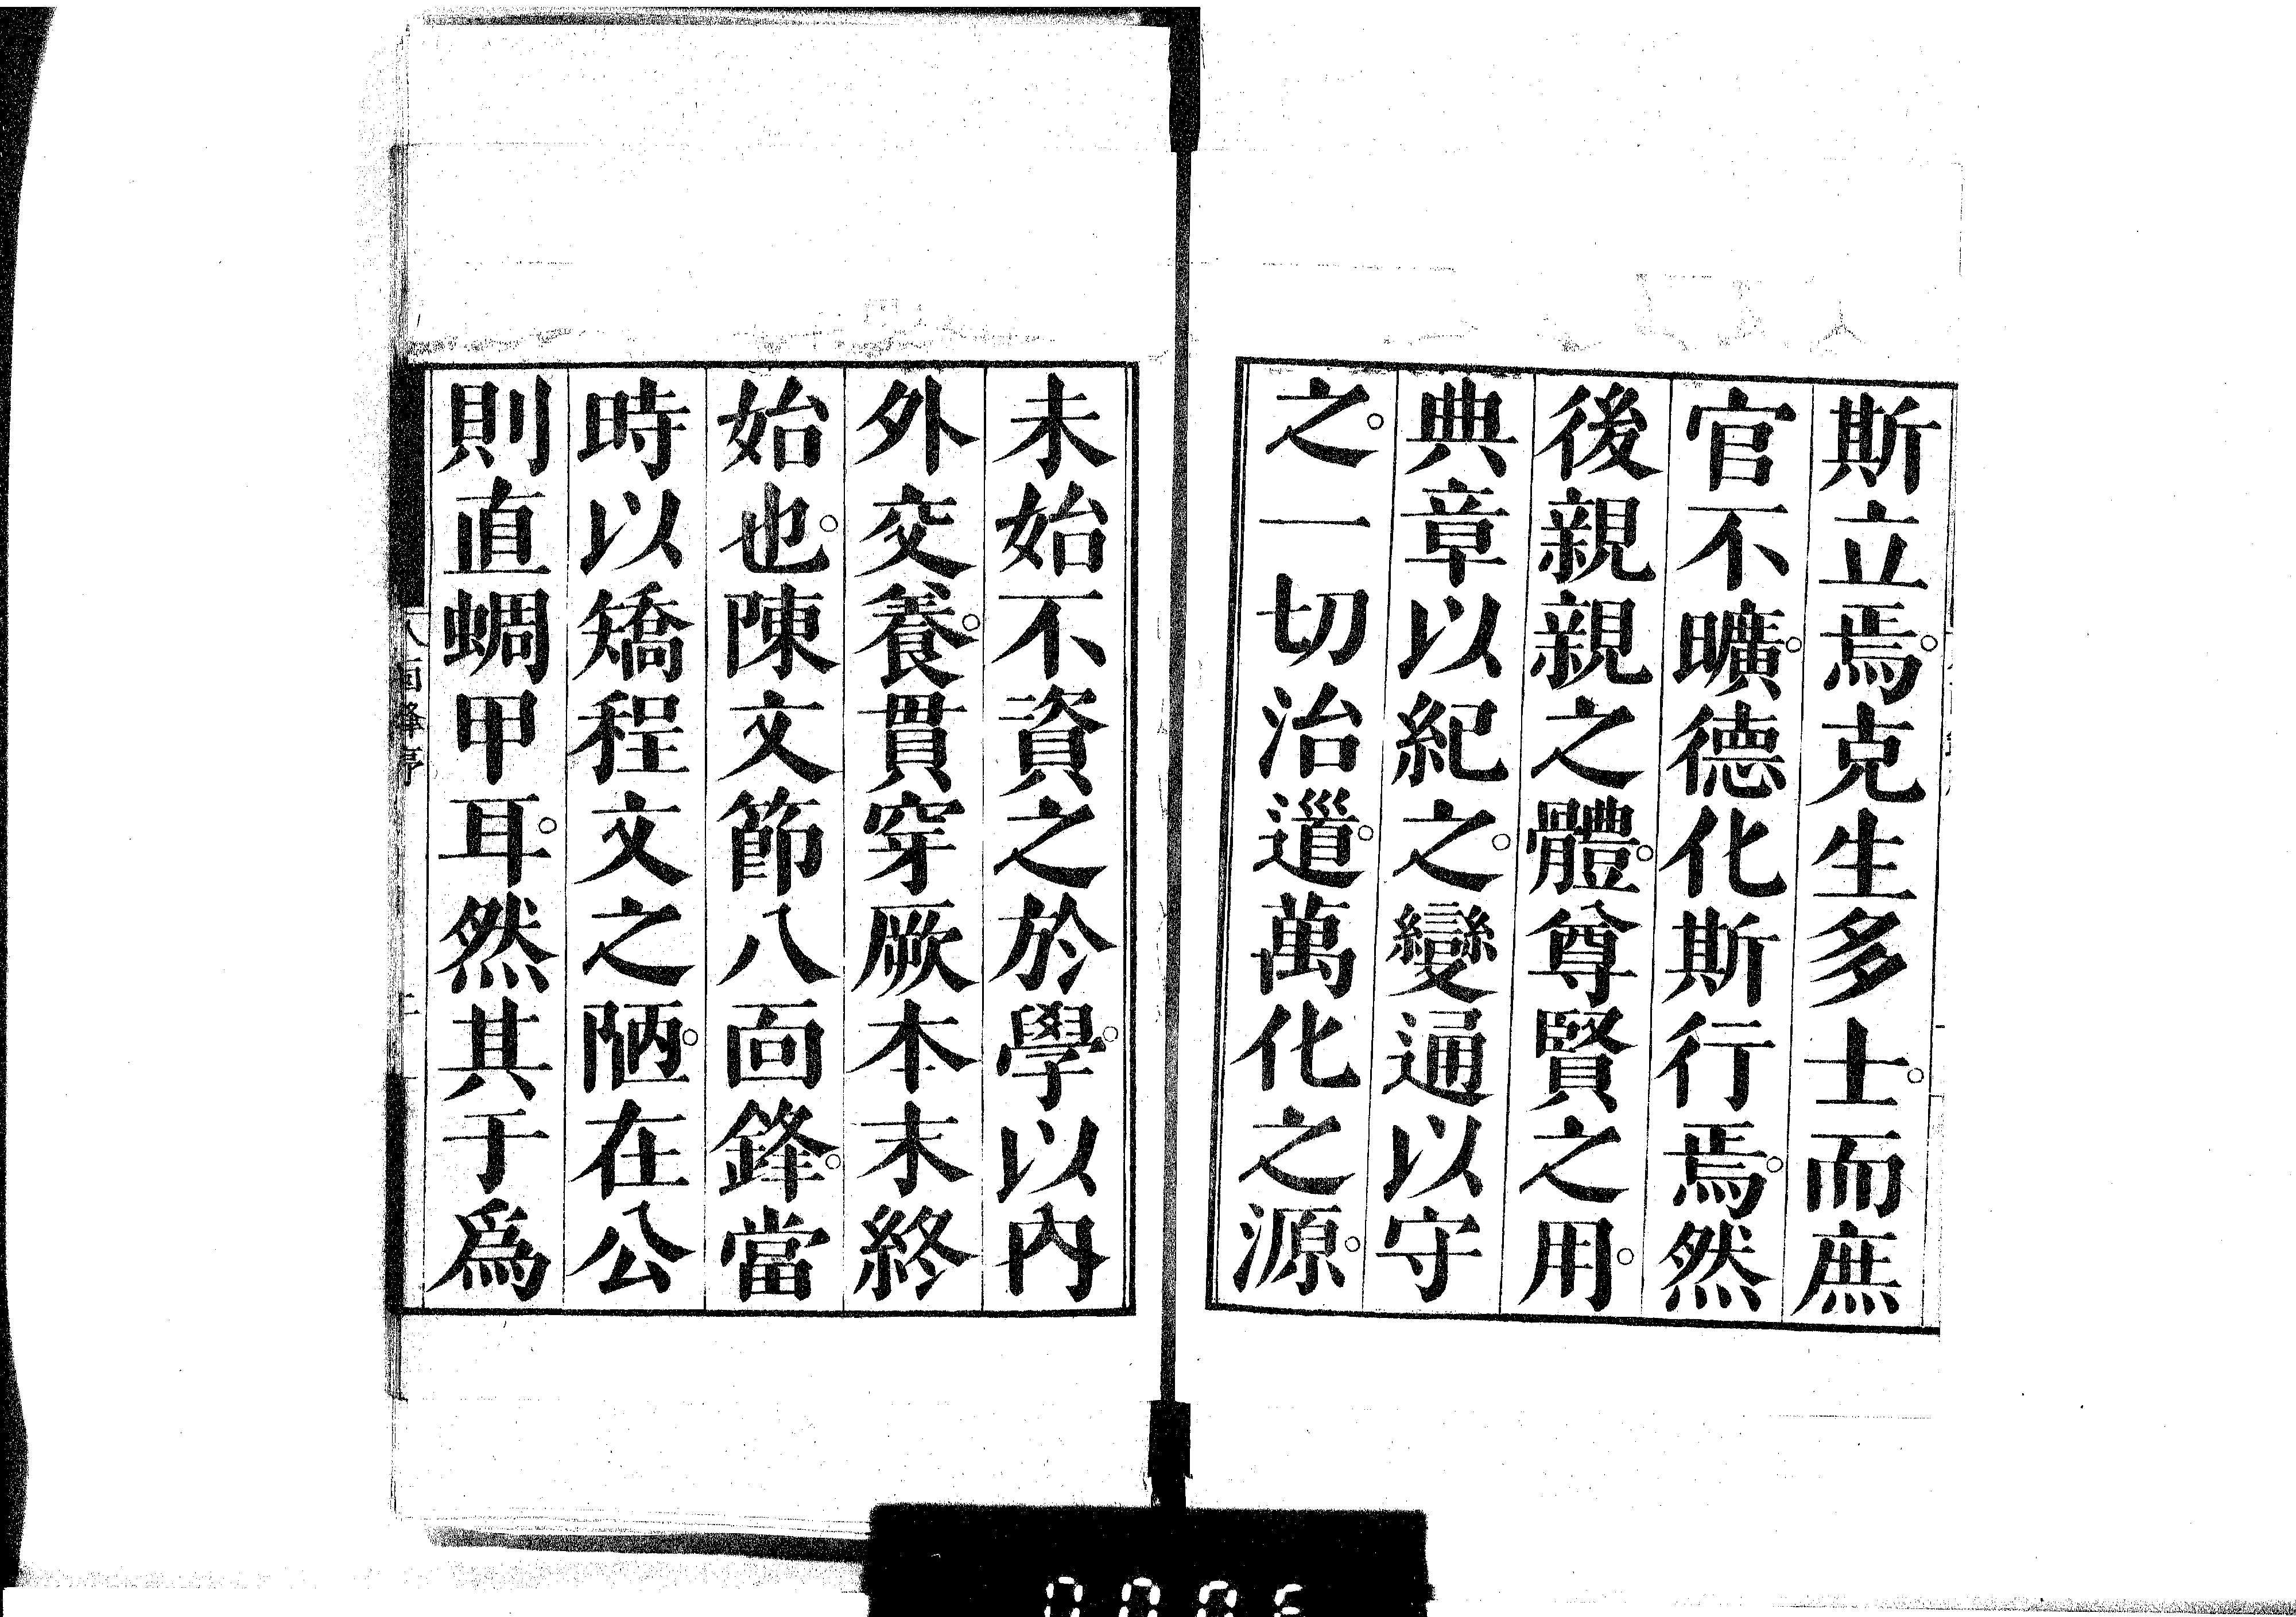 斯立焉。克生多士。而庶
官不曠。德化斯行焉。然
後親親之體。尊賢之用。
典章以紀之。變通以守
之。一切治道。萬化之源。
未始不資之於學。以內
外交養。貫穿厥本末終
始也。陳文節八面鋒。當
時以矯程文之陋。在公
則直蜩甲耳。然其于爲